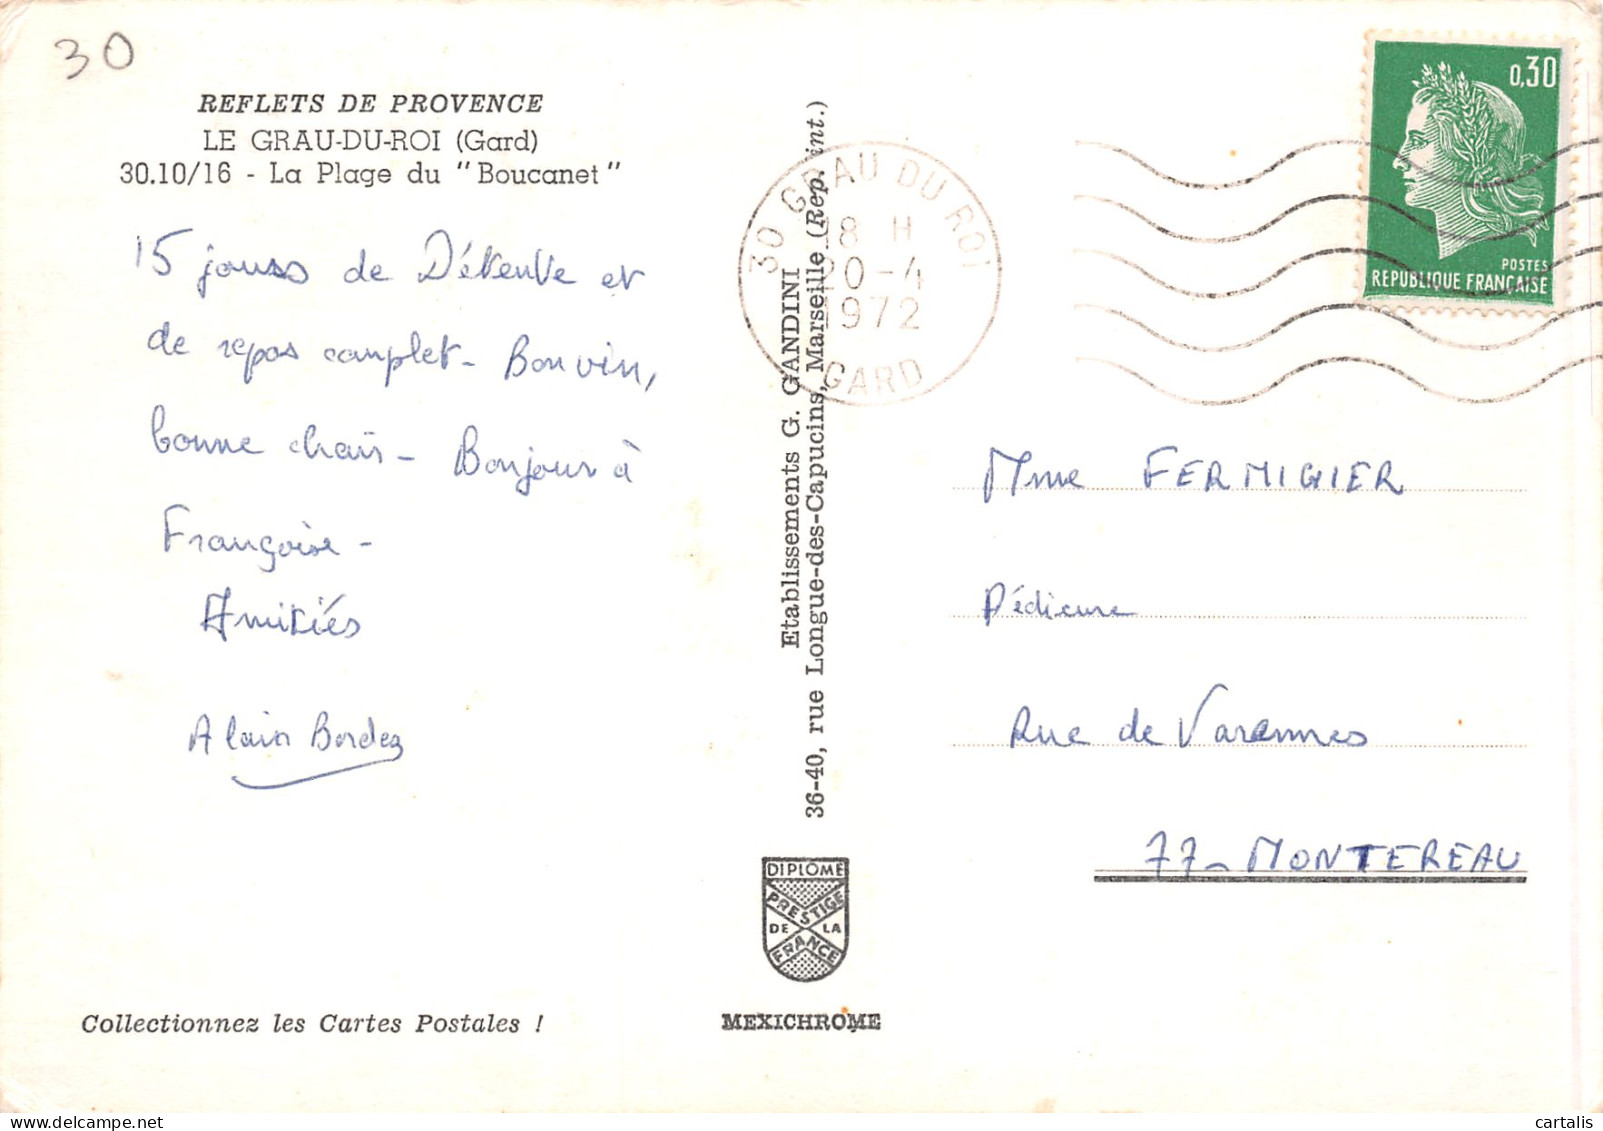 30
REFLETS DE PROVENCE
LE GRAU-DU-ROI (Gard)
30.10/16 - La Plage du "Boucanet"
15 jours de Détente et
de repos complet - Bon vin,
bonne chair - Bonjour à
Françoise -
Amitiés
Alain Bordez
Collectionnez les Cartes Postales !
Etablissements G. GANDINI
36-40, rue Longue-des-Capucins, Marseille (Rep. int.)
DIPLOME
PRESTIGE
DE LA
FRANCE
MEXICHROME
30 GRAU DU ROI
18 H
20-4
1972
GARD
0,30
POSTES
REPUBLIQUE FRANÇAISE
Mme FERMIGIER
Pédicure
Rue de Varennes
77 - MONTEREAU
cartalis